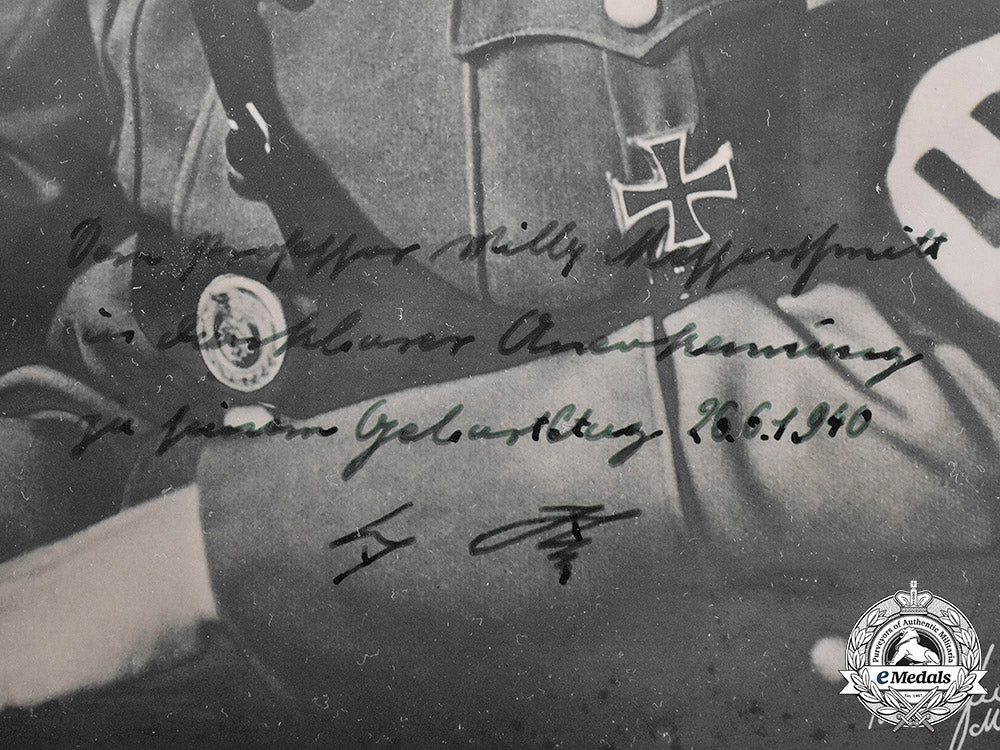 Dem Professor Willy Messerschmitt
in dankbarer Anerkennung
zu seinem Geburtstag 26.6.1940
Purveyors of Authentic Militaria
eMedals
Est. 1967